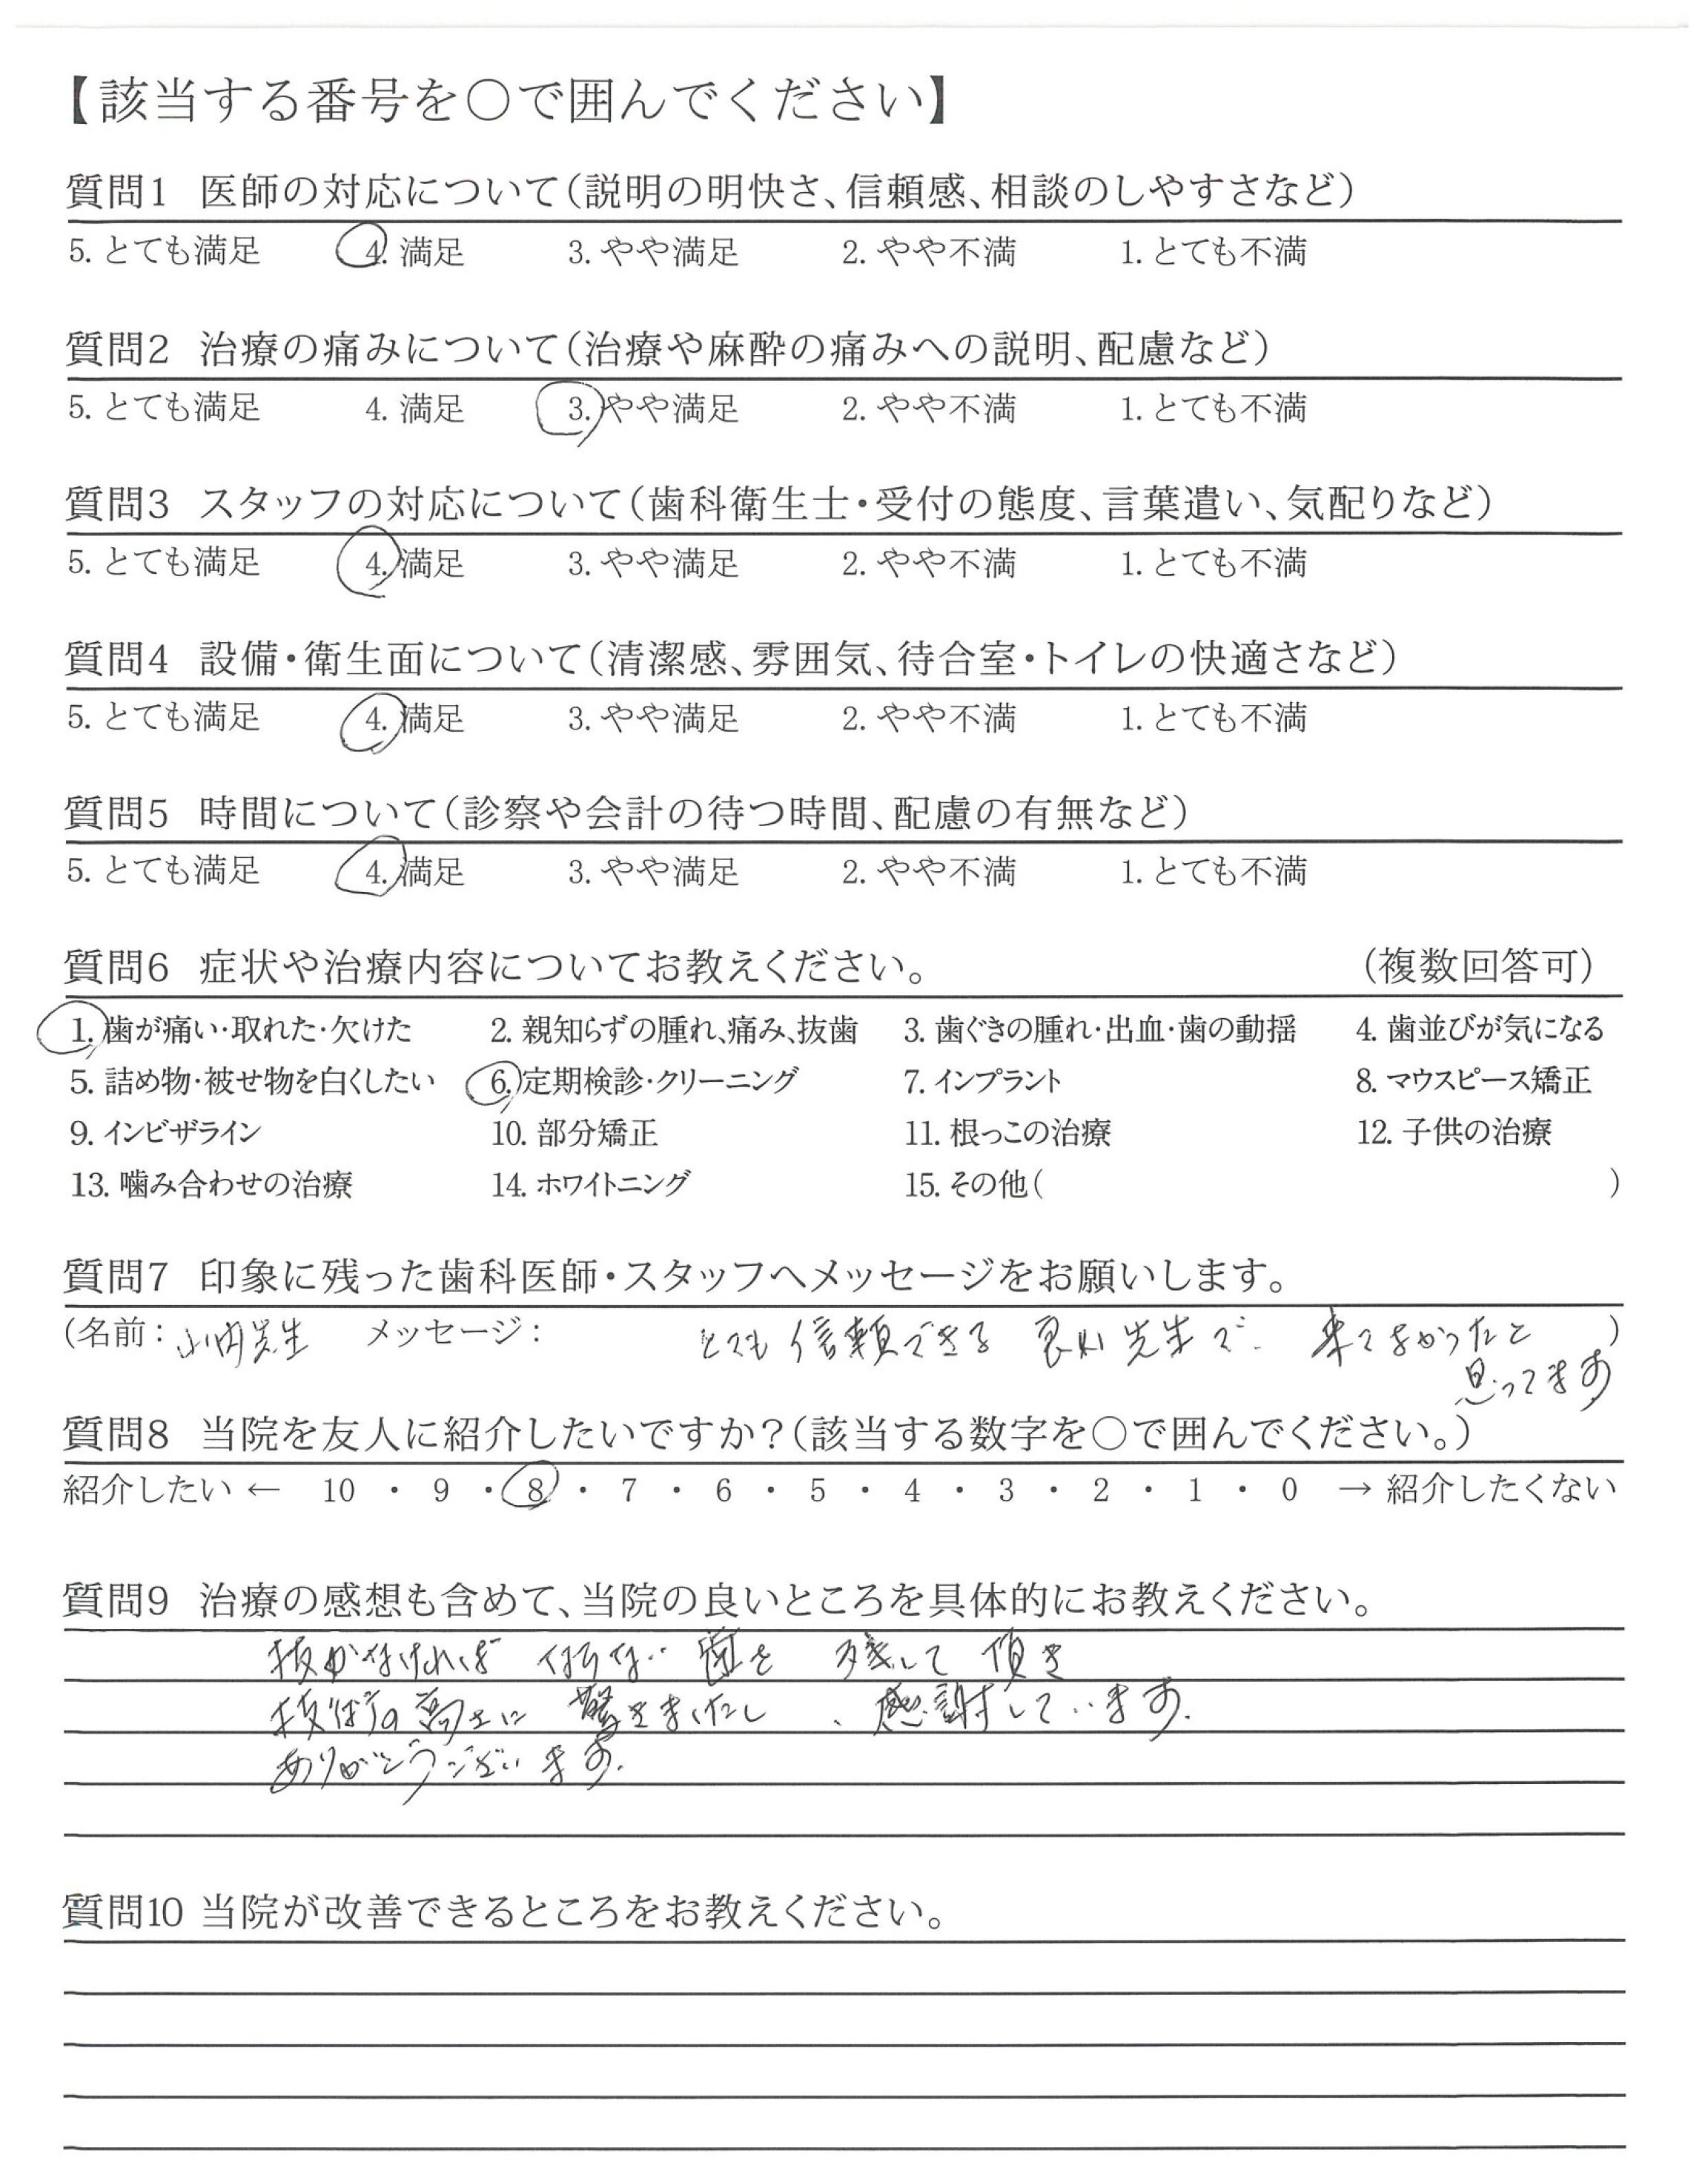 【該当する番号を○で囲んでください】
質問1 医師の対応について(説明の明快さ、信頼感、相談のしやすさなど)
5. とても満足 4. 満足 3. やや満足 2. やや不満 1. とても不満
質問2 治療の痛みについて(治療や麻酔の痛みへの説明、配慮など)
5. とても満足 4. 満足 3. やや満足 2. やや不満 1. とても不満
質問3 スタッフの対応について(歯科衛生士・受付の態度、言葉遣い、気配りなど)
5. とても満足 4. 満足 3. やや満足 2. やや不満 1. とても不満
質問4 設備・衛生面について(清潔感、雰囲気、待合室・トイレの快適さなど)
5. とても満足 4. 満足 3. やや満足 2. やや不満 1. とても不満
質問5 時間について(診察や会計の待つ時間、配慮の有無など)
5. とても満足 4. 満足 3. やや満足 2. やや不満 1. とても不満
質問6 症状や治療内容についてお教えください。 (複数回答可)
1. 歯が痛い・取れた・欠けた 2. 親知らずの腫れ、痛み、抜歯 3. 歯ぐきの腫れ・出血・歯の動揺 4. 歯並びが気になる
5. 詰め物・被せ物を白くしたい 6. 定期検診・クリーニング 7. インプラント 8. マウスピース矯正
9. インビザライン 10. 部分矯正 11. 根っこの治療 12. 子供の治療
13. 噛み合わせの治療 14. ホワイトニング 15. その他( )
質問7 印象に残った歯科医師・スタッフへメッセージをお願いします。
(名前: 小内先生 メッセージ: とても信頼できる 良い先生で 来てよかったと )
思ってます
質問8 当院を友人に紹介したいですか?(該当する数字を○で囲んでください。)
紹介したい ← 10 ・ 9 ・ 8 ・ 7 ・ 6 ・ 5 ・ 4 ・ 3 ・ 2 ・ 1 ・ 0 → 紹介したくない
質問9 治療の感想も含めて、当院の良いところを具体的にお教えください。
抜かなければ 行けない 歯を 残して 頂き
技術の高さに 驚きましたし 、感謝しています.
ありがとうございます.
質問10 当院が改善できるところをお教えください。